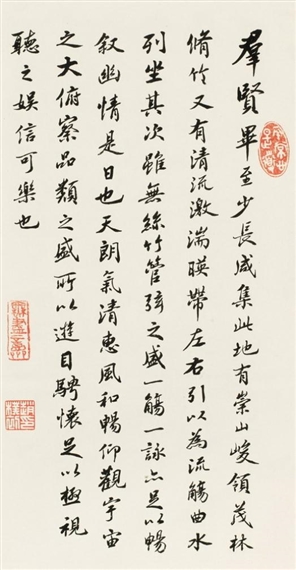 羣賢畢至少長咸集此地有崇山峻領茂林
脩竹又有清流激湍暎帶左右引以為流觴曲水
列坐其次雖無絲竹管弦之盛一觴一詠亦足以暢
叙幽情是日也天朗氣清惠風和暢仰觀宇宙
之大俯察品類之盛所以遊目騁懷足以極視
聽之娛信可樂也